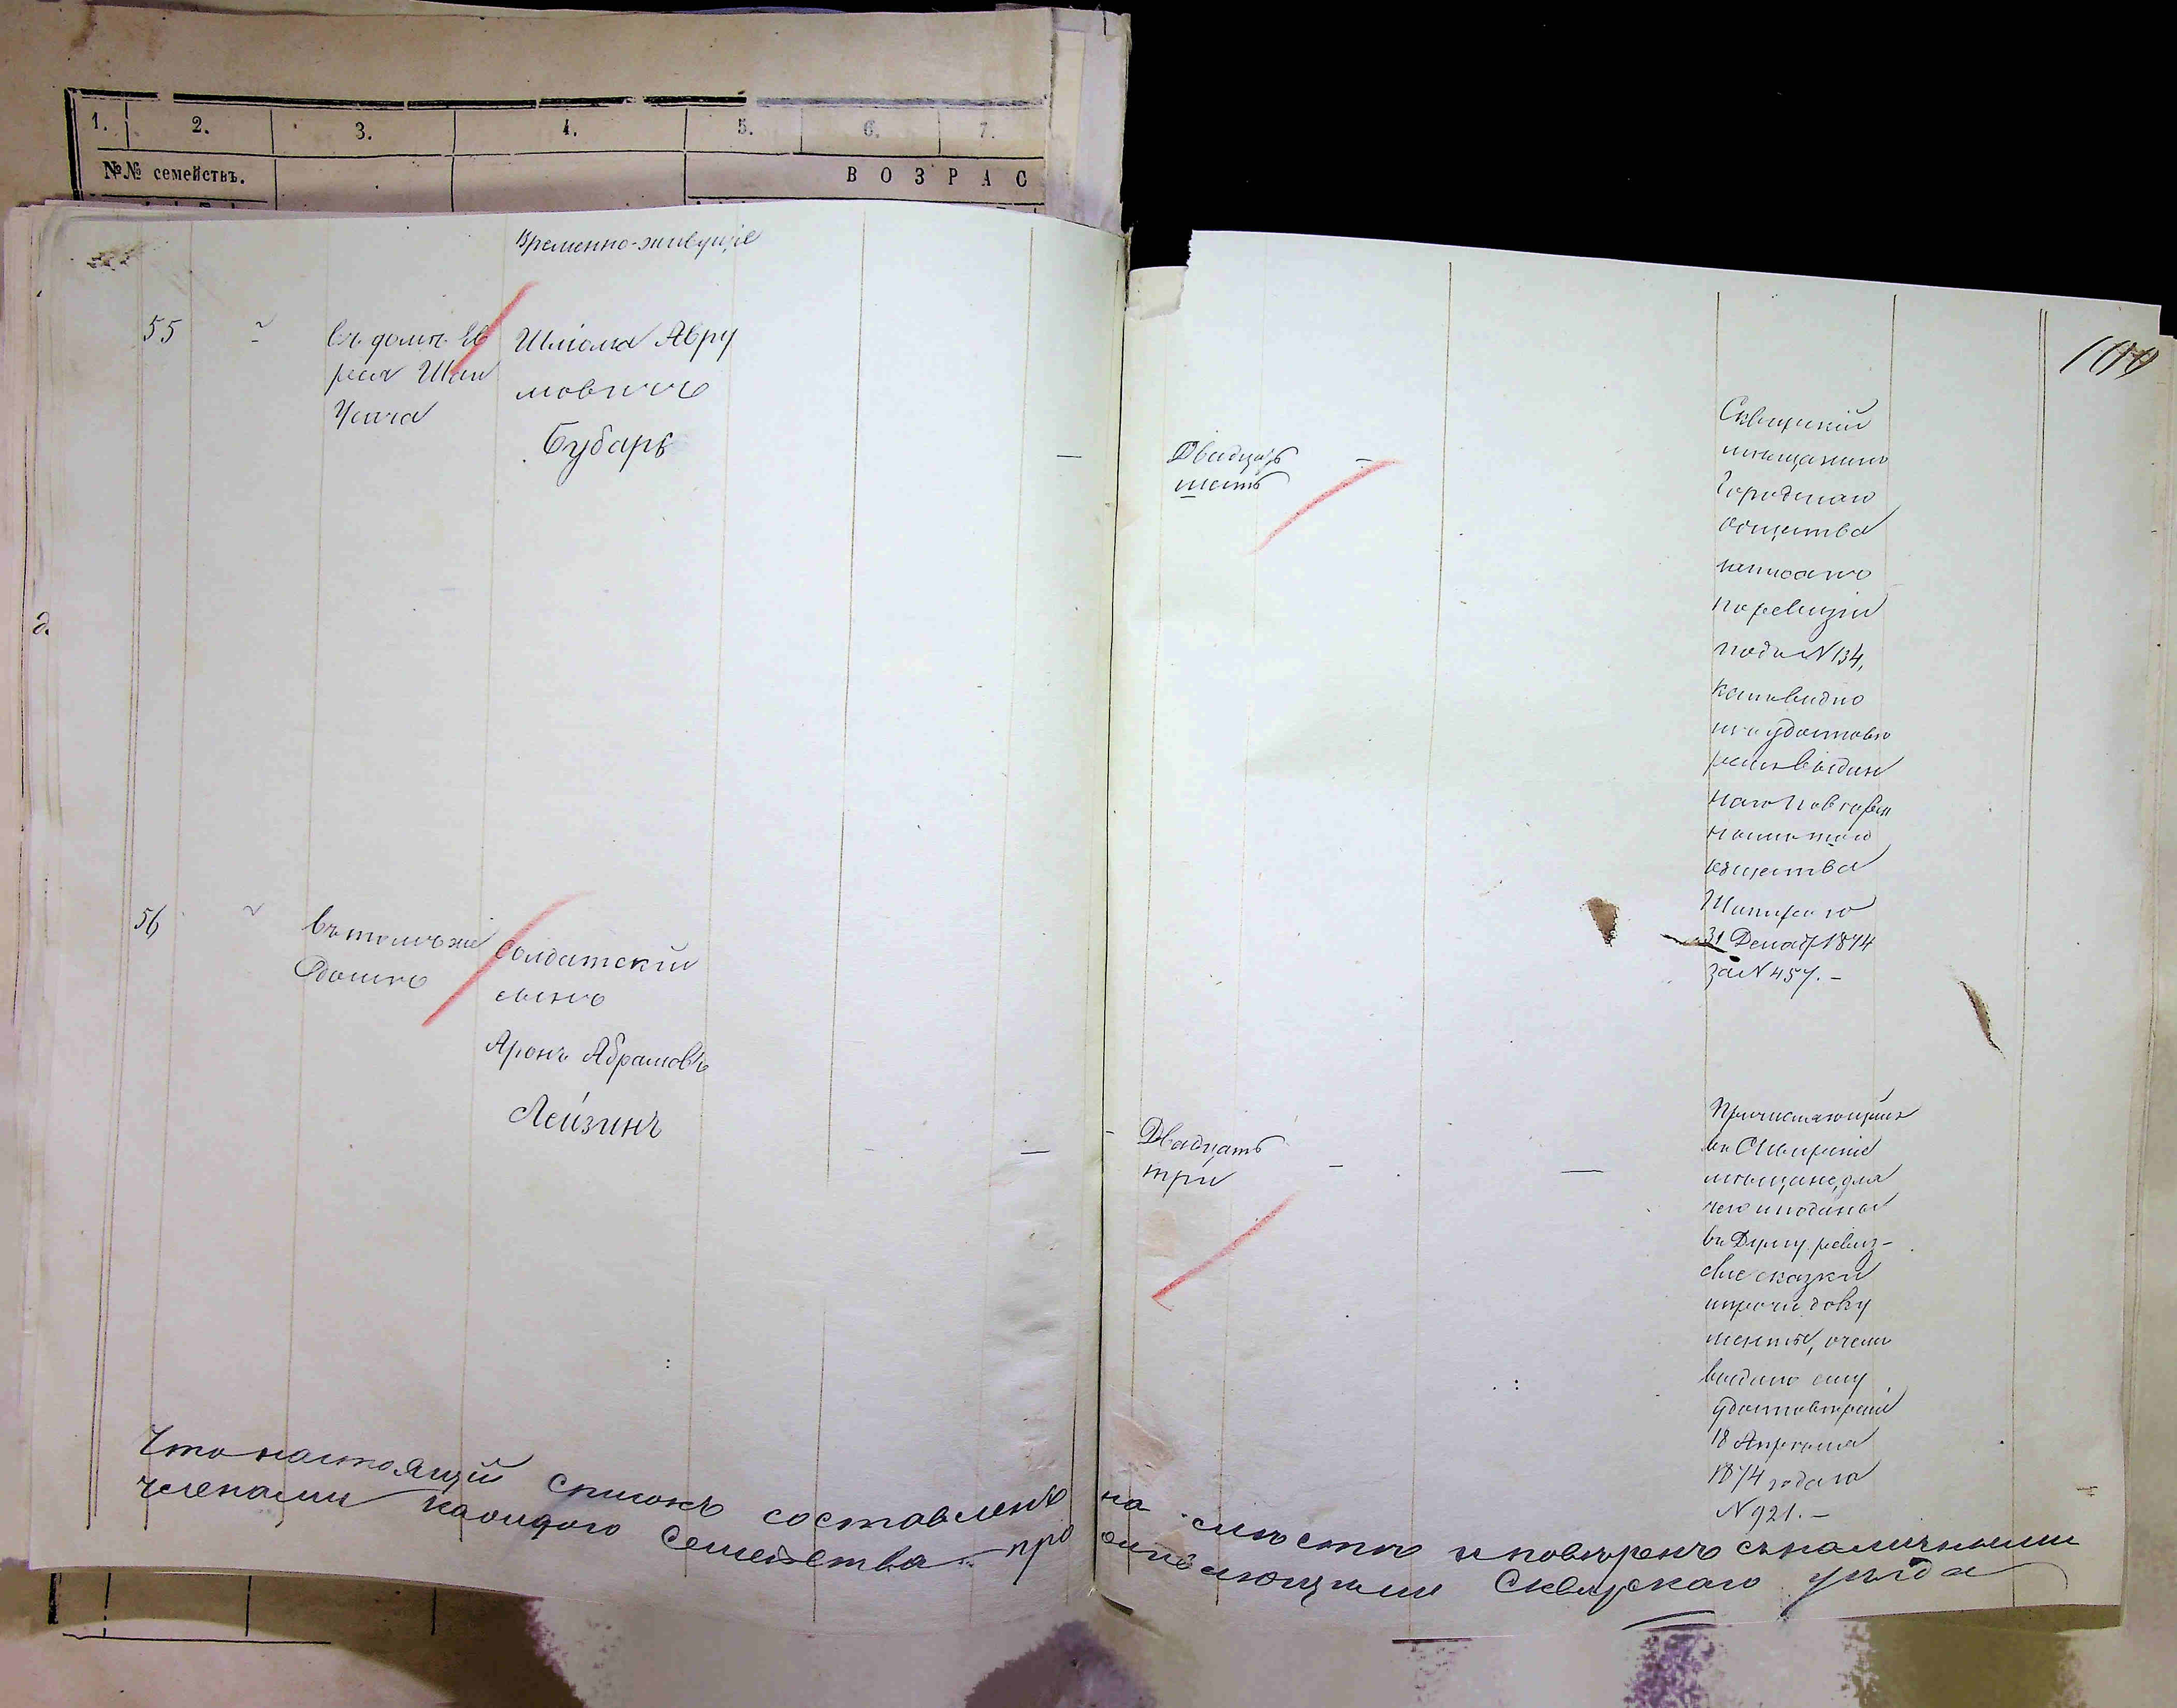 1. 2. 3. 4. 5. 6. 7.
№№ семействъ.
ВОЗРАС
Временно-живущіе
100
55
въ домѣ Ев
рея
Шлiома Авру
мовичъ
Бубаръ
—
Двадцать
шесть
—
Сквирскій
мѣщанинъ
Городскаго
общества
записанъ
по ревизіи
подъ № 134,
какъ видно
изъ удостовѣ
общества
31 Декаб. 1874
за № 457. –
56
въ томъ же
домѣ
Солдатскій
сынъ
Аронъ Абрамовъ
Лейзинъ
—
Двадцать
три
—
—
въ Сквирскіе
мѣщане, для
чего и поданы
въ Думу ревиз-
скіе сказки
и проч. доку
менты, о чемъ
выдано ему
18 Апрѣля
1874 года за
№ 921. –
Что настоящій списокъ составленъ на мѣстѣ и повѣренъ съ наличными
членами каждого семейства – про Сквирскаго уѣзда